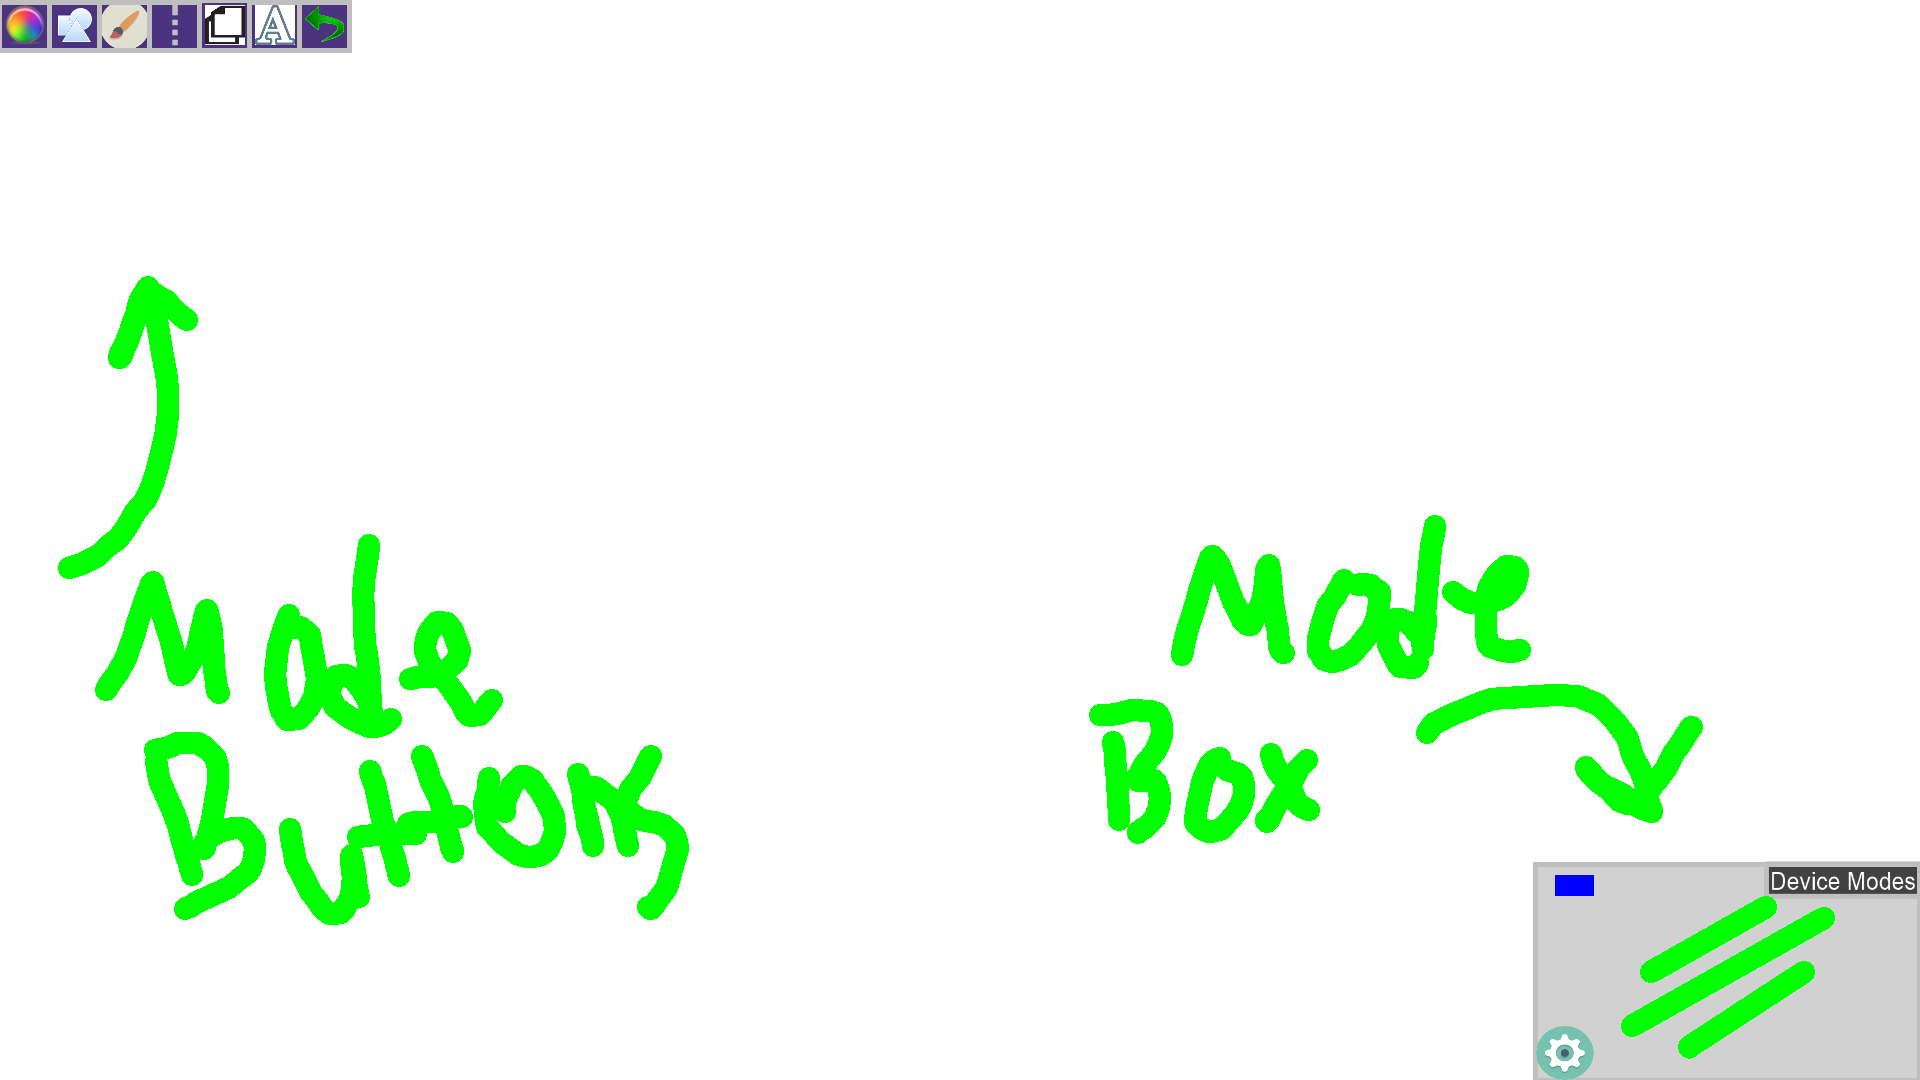 Mode
Buttons
Mode
Box
Device Modes